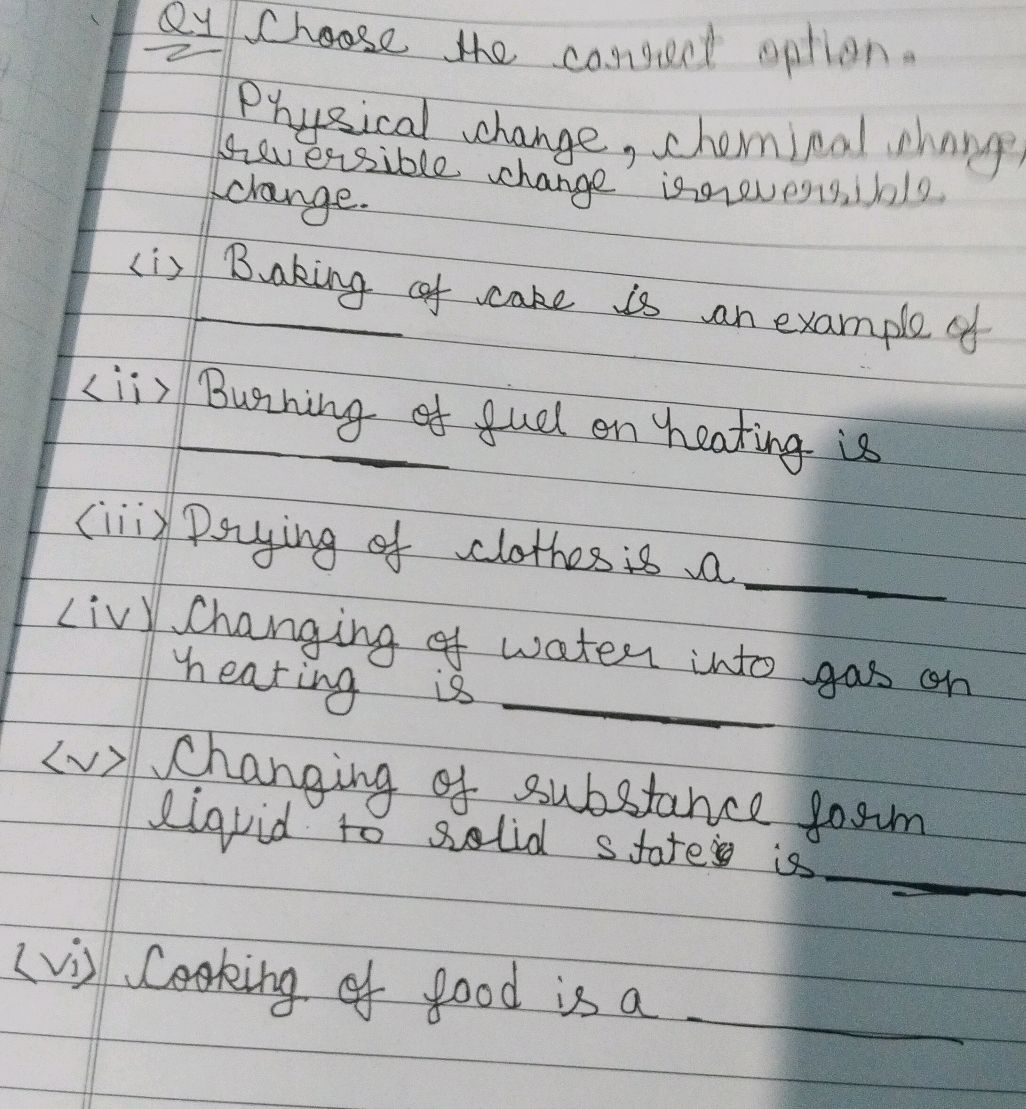 Q4 Choose the correct option.
Physical change, chemical change,
reversible change irreversible
change.
(i) Baking of cake is an example of
(ii) Burning of fuel on heating is
(iii) Drying of clothes is a
(iv) Changing of water into gas on
heating is
(v) Changing of substance form
liquid to solid state is
(vi) Cooking of food is a